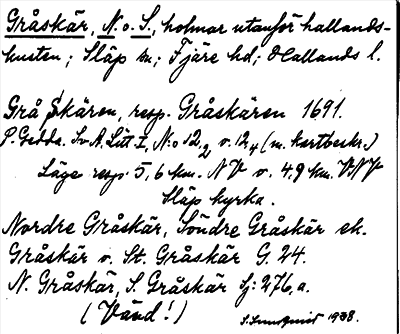 Gråskär, N. o. S., holmar utanför hallands-
kusten; Släp sn; Fjäre hd; Hallands l.
Grå Skären, resp. Gråskären 1691.
P. Gedda. Sv. A. Litt. I, N:o 12,2 o. 12,4 (m. kartbeskr.)
Läge resp. 5,6 km. NV o. 4,9 km. VNV
Släp kyrka.
Nordre Gråskär, Söndre Gråskär ek.
Gråskär o. St. Gråskär G. 24.
N. Gråskär, S. Gråskär Sj: 276, a.
(Vänd!) S. Lundquist 1938.